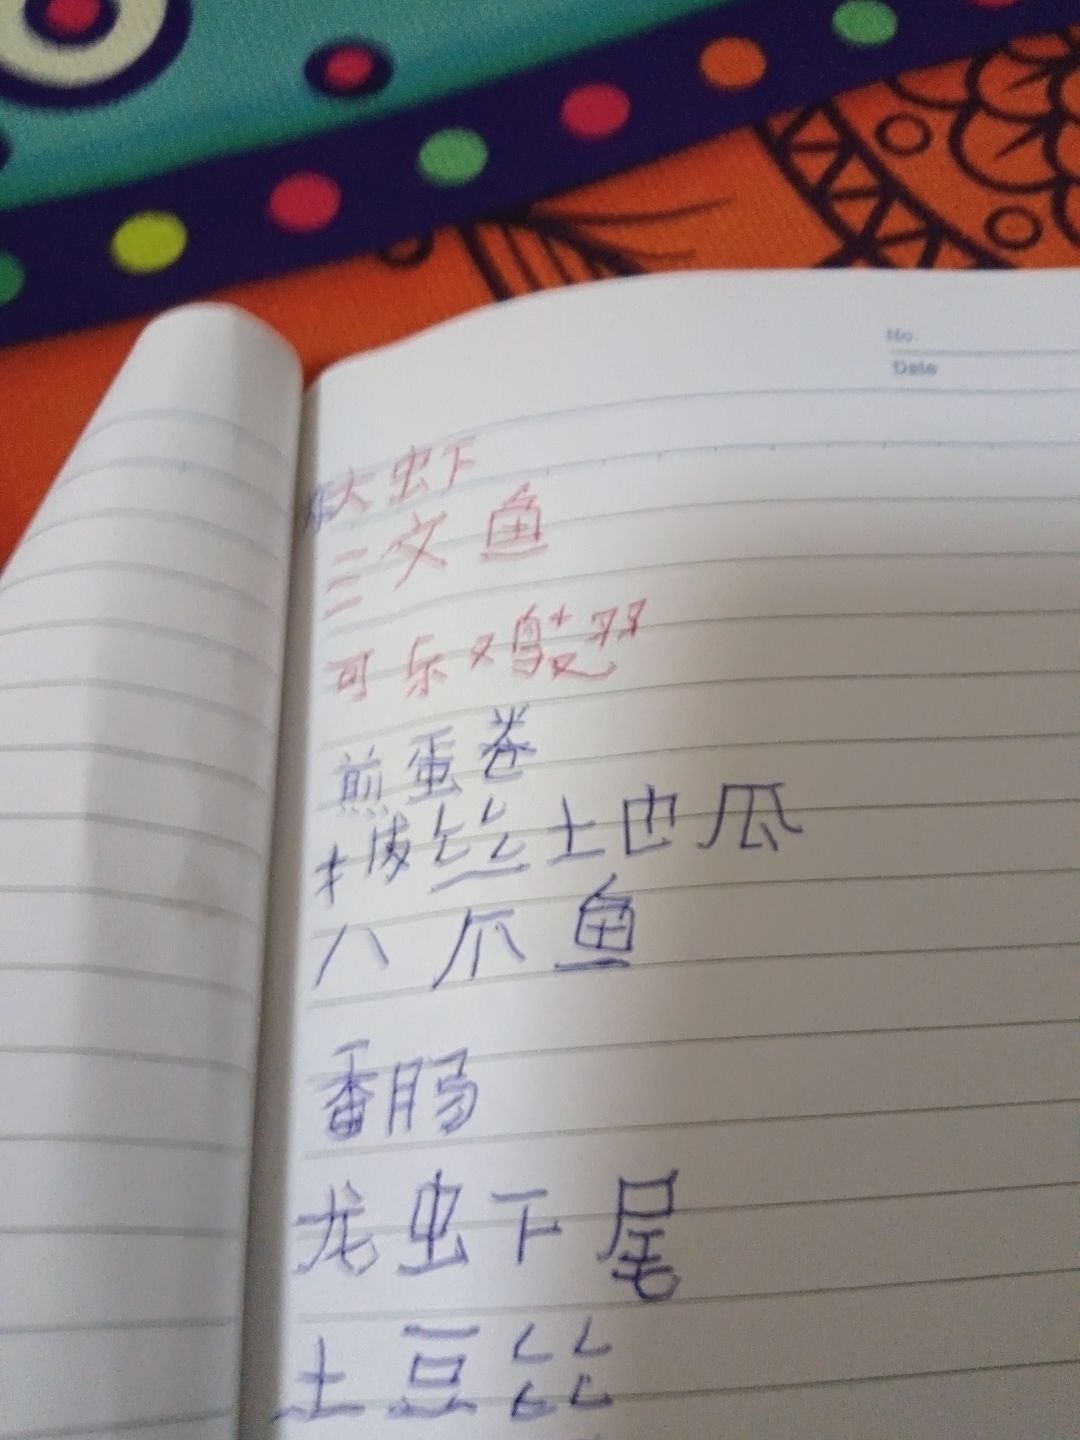 No.
Date
大虾
三文鱼
可乐鸡翅
煎蛋卷
拔丝地瓜
八爪鱼
香肠
龙虾尾
土豆丝